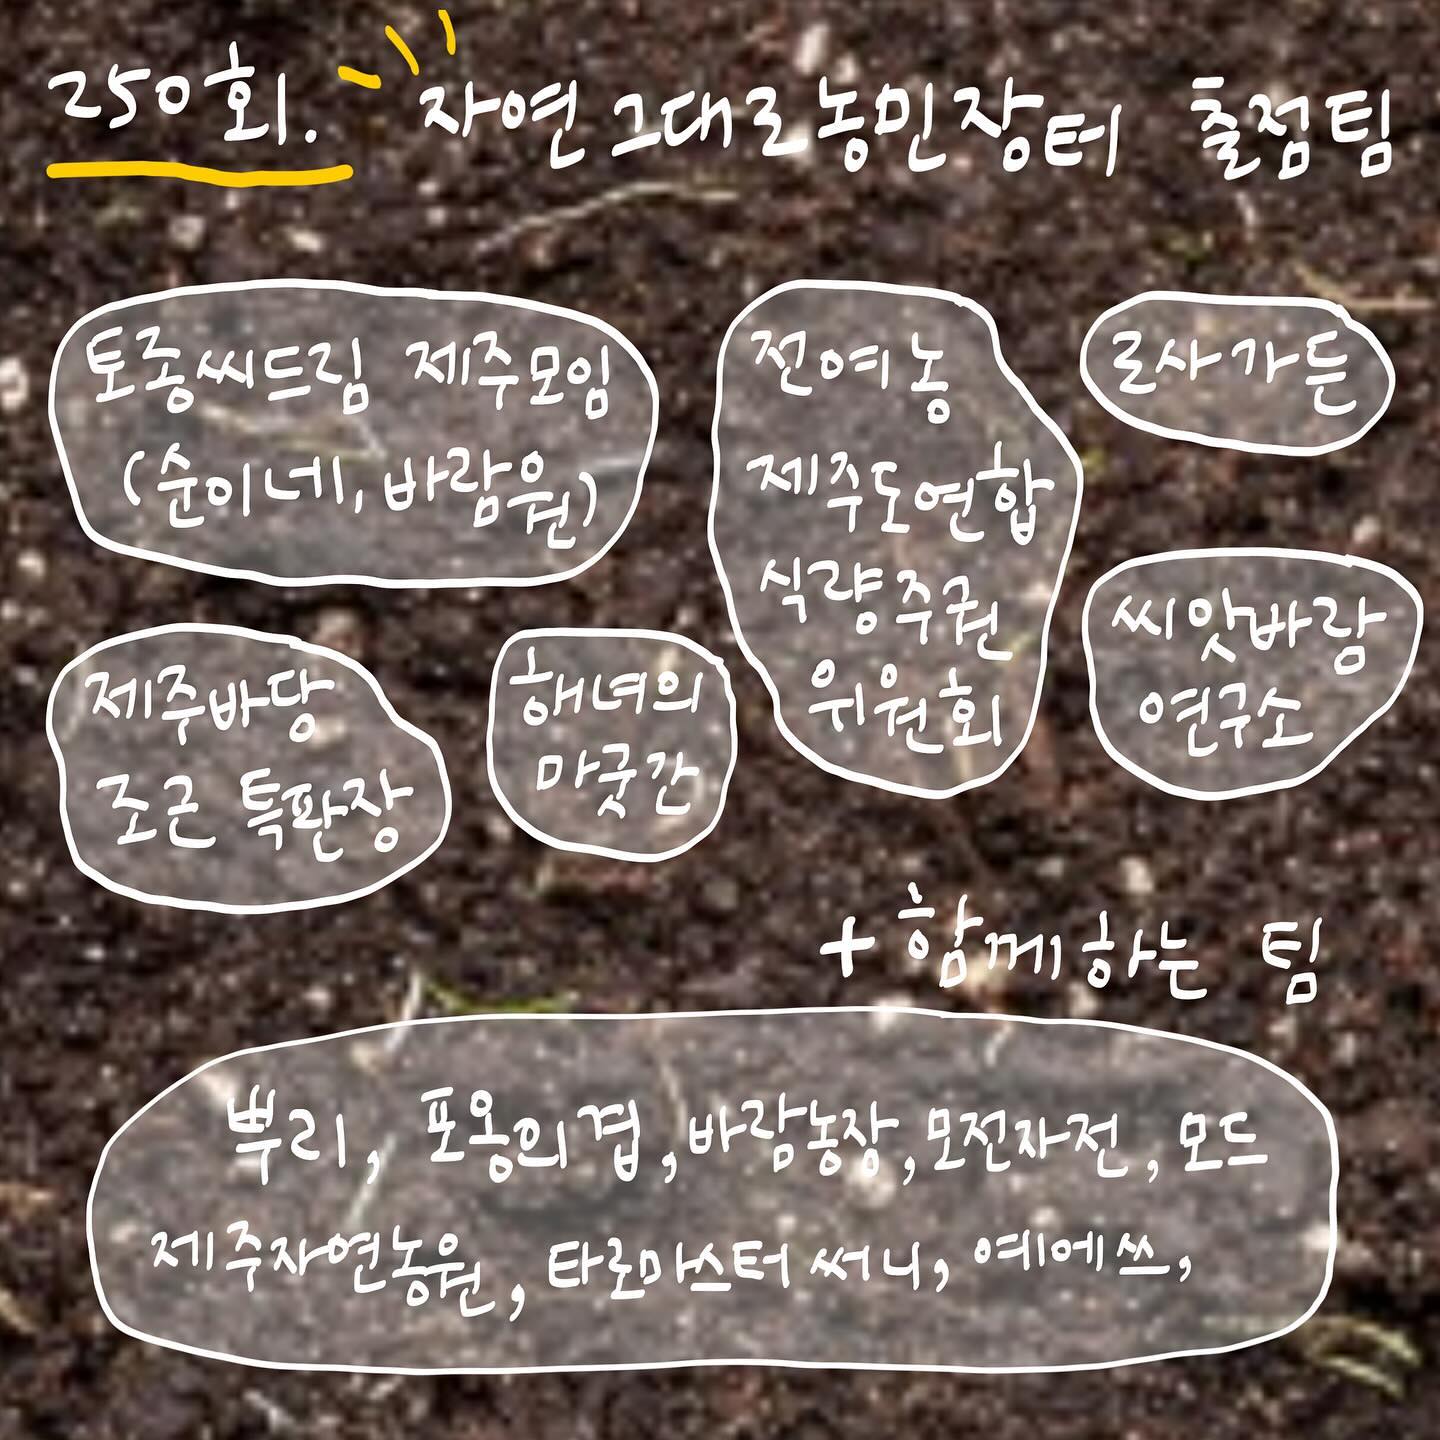 250회. 자연그대로농민장터 출점팀
토종씨드림 제주모임
(순이네, 바람원)
전여농
제주도연합
식량주권
위원회
로사가든
제주바당
조근 특판장
해녀의
마굿간
씨앗바람
연구소
+ 함께하는 팀
뿌리, 포옹의겹, 바람농장, 모전자전, 모드
제주자연농원, 타로마스터 써니, 예에쓰,